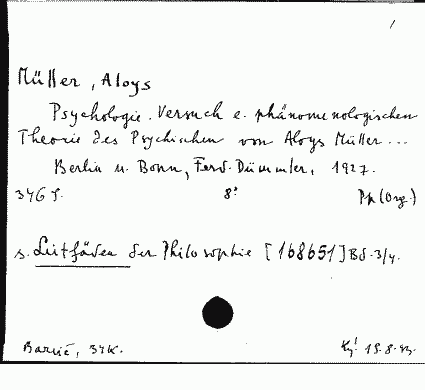 Müller, Aloys
Psychologie. Versuch e. phänomenologischen
Theorie des Psychischen von Aloys Müller...
Berlin u. Bonn, Ferd. Dümmler, 1927.
346 S. 8° Pp (Org.)
s. Leitfäden der Philosophie [168651] Bd. 3/4.
34K. 15.8.43.